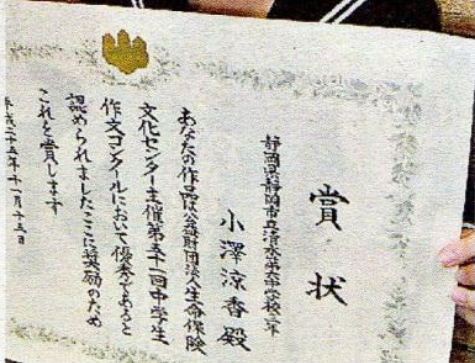 賞状
静岡県静岡市立清水第六中学校二年
小澤涼香殿
あなたの作品は公益財団法人生命保険
文化センター主催第五十一回中学生
作文コンクールにおいて優秀であると
認められましたここに奨励のため
これを賞します
平成二十五年十一月十五日